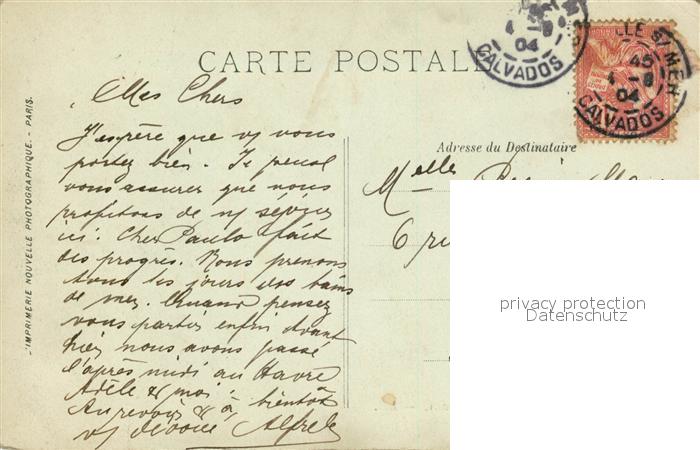 CARTE POSTALE
4 - 8
04
CALVADOS
VILLE S/ MER
45
4 - 8
04
CALVADOS
L'IMPRIMERIE NOUVELLE PHOTOGRAPHIQUE. - PARIS.
Adresse du Destinataire
Melle
6 ru
Mes Chers
J'espère que vs vous
portez bien. Je peux
vous assurer que nous
profitons de
ici. Cher Paulo fait
des progrès. Nous prenons
tous les jours des bains
de mer. Quand pensez
vous partir enfin
hier nous avons passé
l'après midi au Havre
Adèle & moi
Au revoir & à bientôt
vs Alfred
privacy protection
Datenschutz